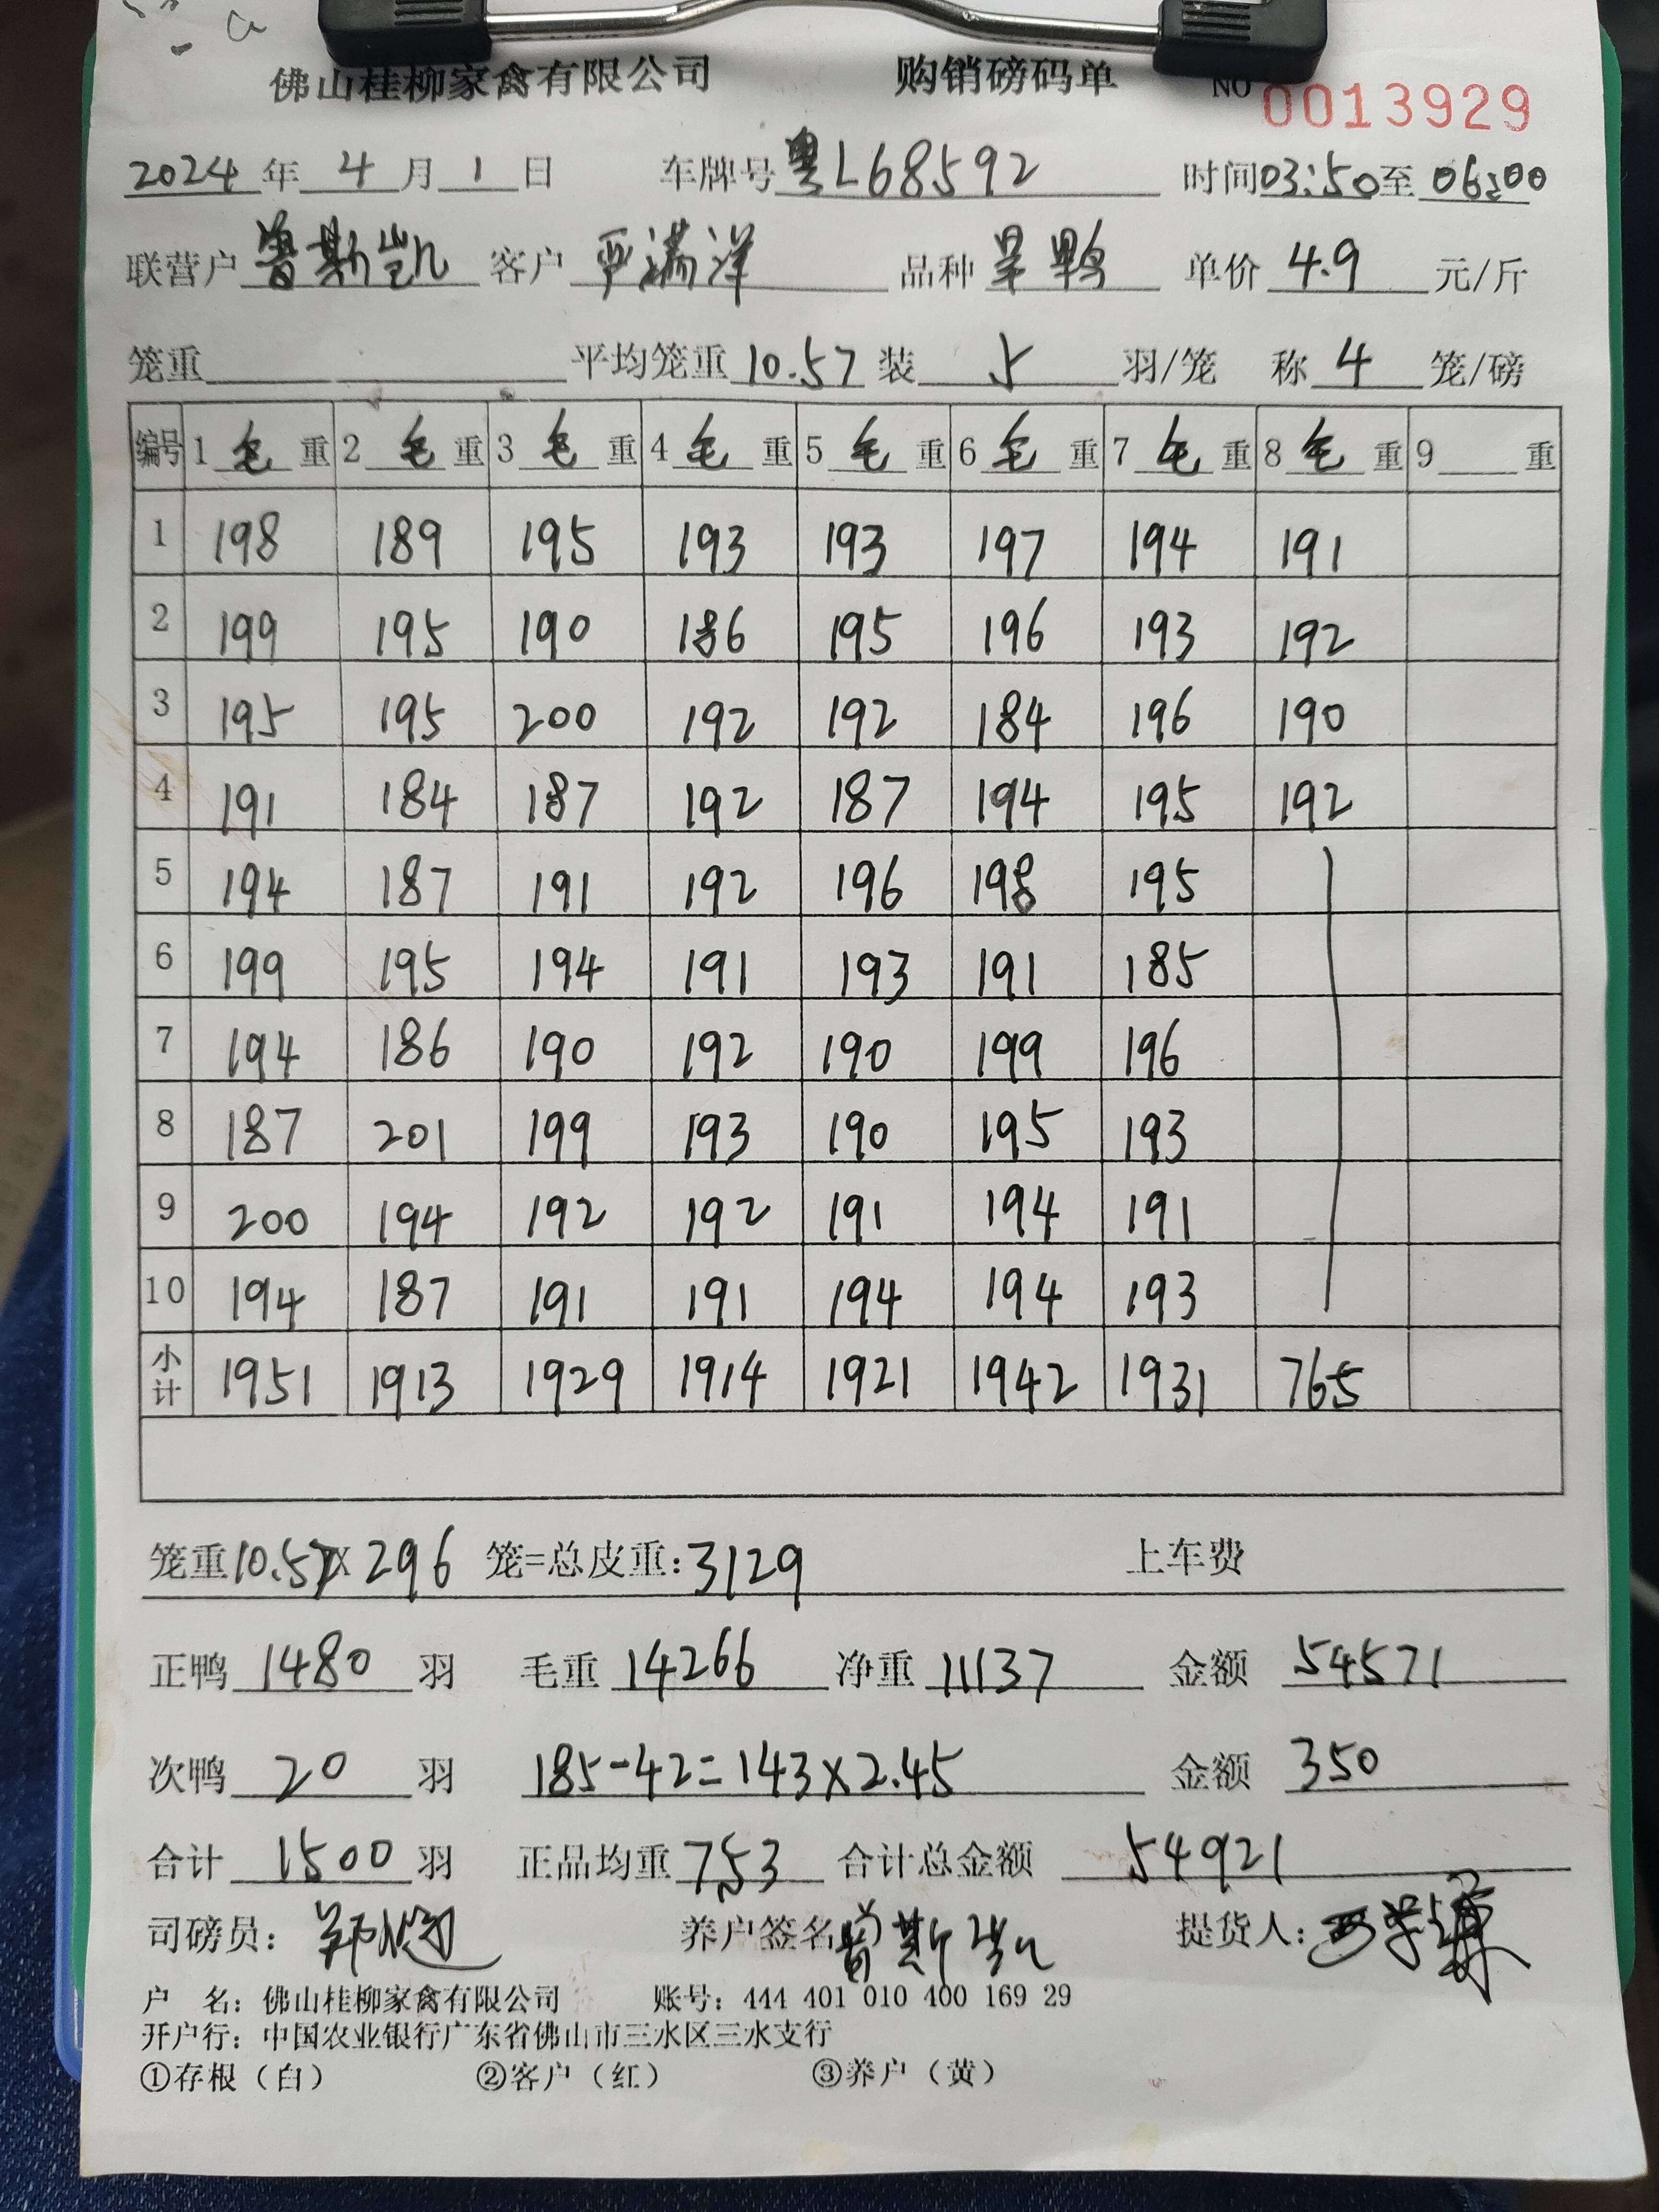 佛山桂柳家禽有限公司 购销磅码单 NO 0013929
2024 年 4 月 1 日 车牌号 粤L68592 时间 03:50 至 06:00
联营户 曾斯凯 客户 严满洋 品种 旱鸭 单价 4.9 元/斤
笼重 平均笼重 10.57 装 5 羽/笼 称 4 笼/磅
编号 1 毛 重 2 毛 重 3 毛 重 4 毛 重 5 毛 重 6 毛 重 7 毛 重 8 毛 重 9 重
1 198 189 195 193 193 197 194 191
2 199 195 190 186 195 196 193 192
3 195 195 200 192 192 184 196 190
4 191 184 187 192 187 194 195 192
5 194 187 191 192 196 198 195
6 199 195 194 191 193 191 185
7 194 186 190 192 190 199 196
8 187 201 199 193 190 195 193
9 200 194 192 192 191 194 191
10 194 187 191 191 194 194 193
小计 1951 1913 1929 1914 1921 1942 1931 765
笼重 10.57 X 296 笼=总皮重: 3129 上车费
正鸭 1480 羽 毛重 14266 净重 11137 金额 54571
次鸭 20 羽 185-42=143×2.45 金额 350
合计 1500 羽 正品均重 7.53 合计总金额 54921
司磅员: 养户签名 曾斯凯 提货人:
户 名: 佛山桂柳家禽有限公司 账号: 444 401 010 400 169 29
开户行: 中国农业银行广东省佛山市三水区三水支行
①存根（白） ②客户（红） ③养户（黄）